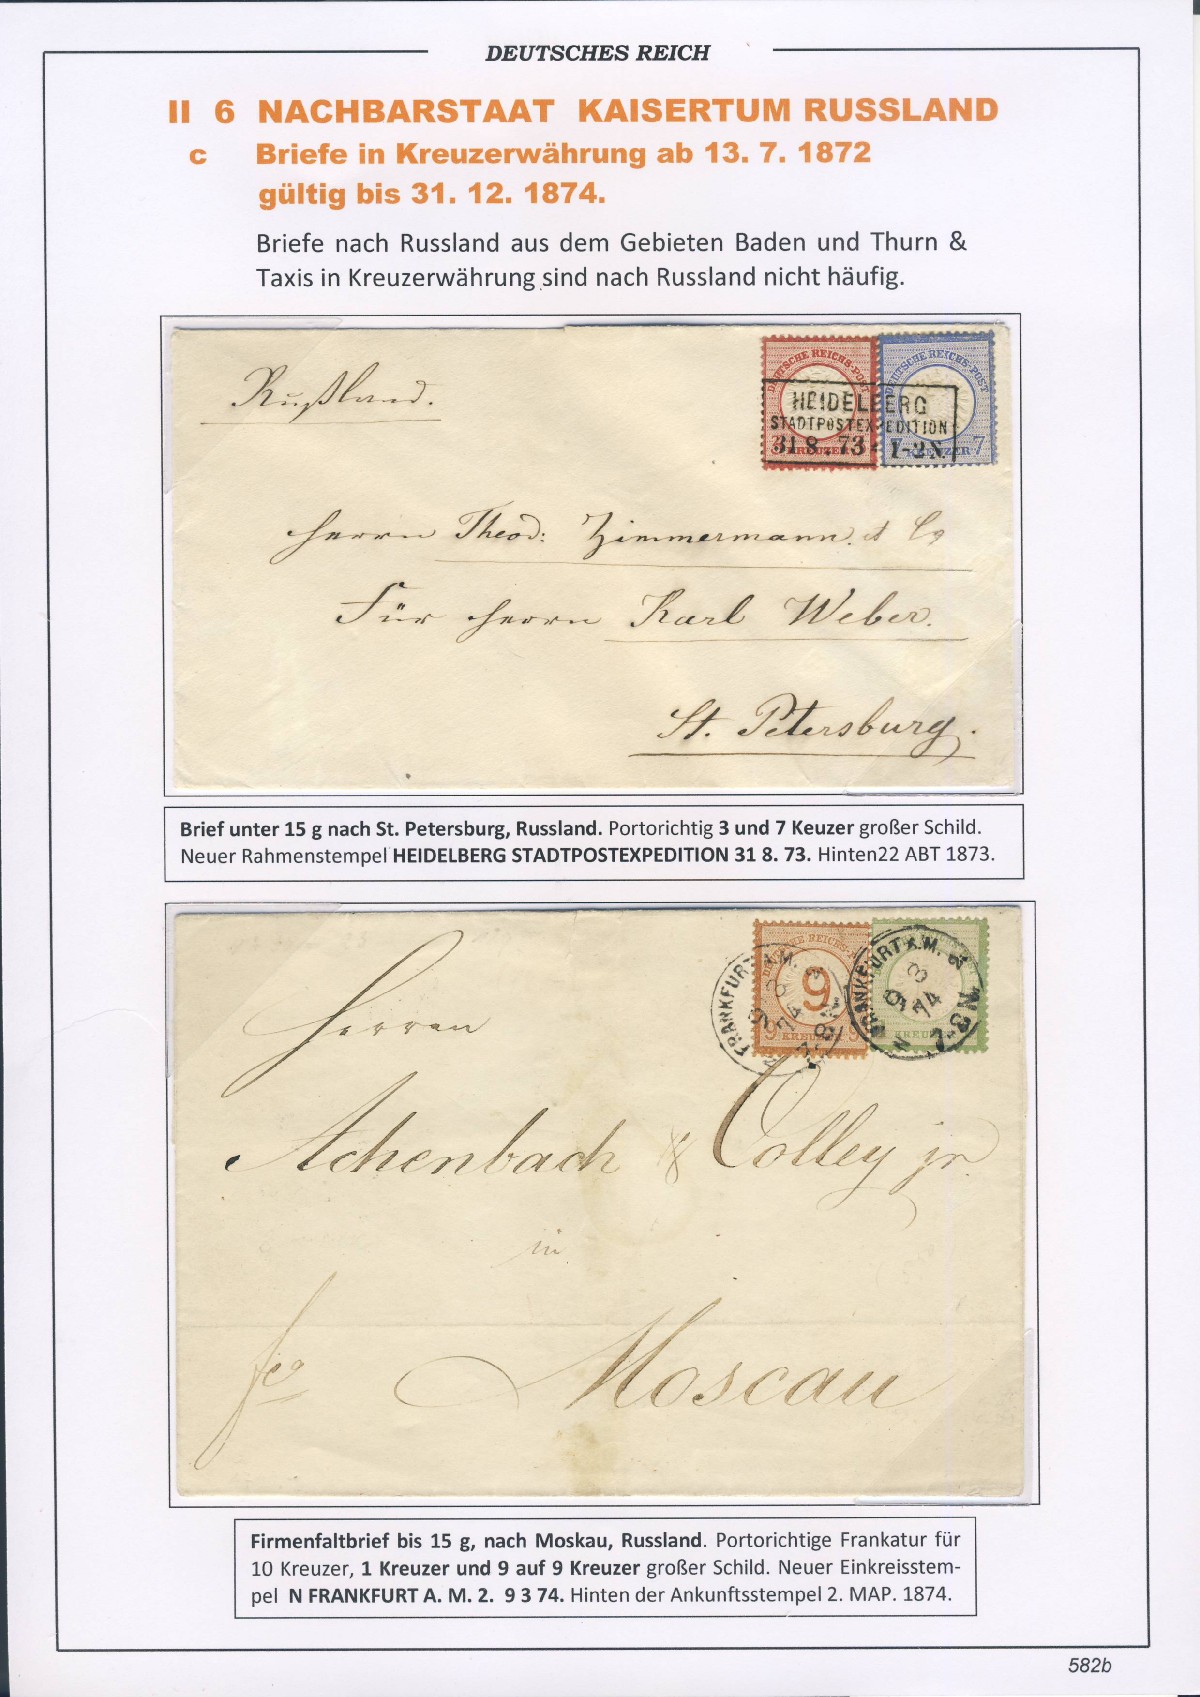 DEUTSCHES REICH
II 6 NACHBARSTAAT KAISERTUM RUSSLAND
c Briefe in Kreuzerwährung ab 13. 7. 1872
gültig bis 31. 12. 1874.
Briefe nach Russland aus dem Gebieten Baden und Thurn &
Taxis in Kreuzerwährung sind nach Russland nicht häufig.
Rußland.
DEUTSCHE REICHS-POST
KREUZER
DEUTSCHE REICHS-POST
KREUZER 7
HEIDELBERG
STADTPOSTEXPEDITION
31 8. 73 · 1-2N.
Herrn Theod: Zimmermann. et Co
Für Herrn Karl Weber.
St. Petersburg.
Brief unter 15 g nach St. Petersburg, Russland. Portorichtig 3 und 7 Keuzer großer Schild.
Neuer Rahmenstempel HEIDELBERG STADTPOSTEXPEDITION 31 8. 73. Hinten22 ABT 1873.
DEUTSCHE REICHS-POST
9
9 KREUZER 9
KREUZER
FRANKFURT A.M. 2
9 3 74
FRANKFURT A.M. 2
9 3 74
N
Herren
Achenbach & Colley jr.
in
fco Moscau
Firmenfaltbrief bis 15 g, nach Moskau, Russland. Portorichtige Frankatur für
10 Kreuzer, 1 Kreuzer und 9 auf 9 Kreuzer großer Schild. Neuer Einkreisstem-
pel N FRANKFURT A. M. 2. 9 3 74. Hinten der Ankunftsstempel 2. MAP. 1874.
582b